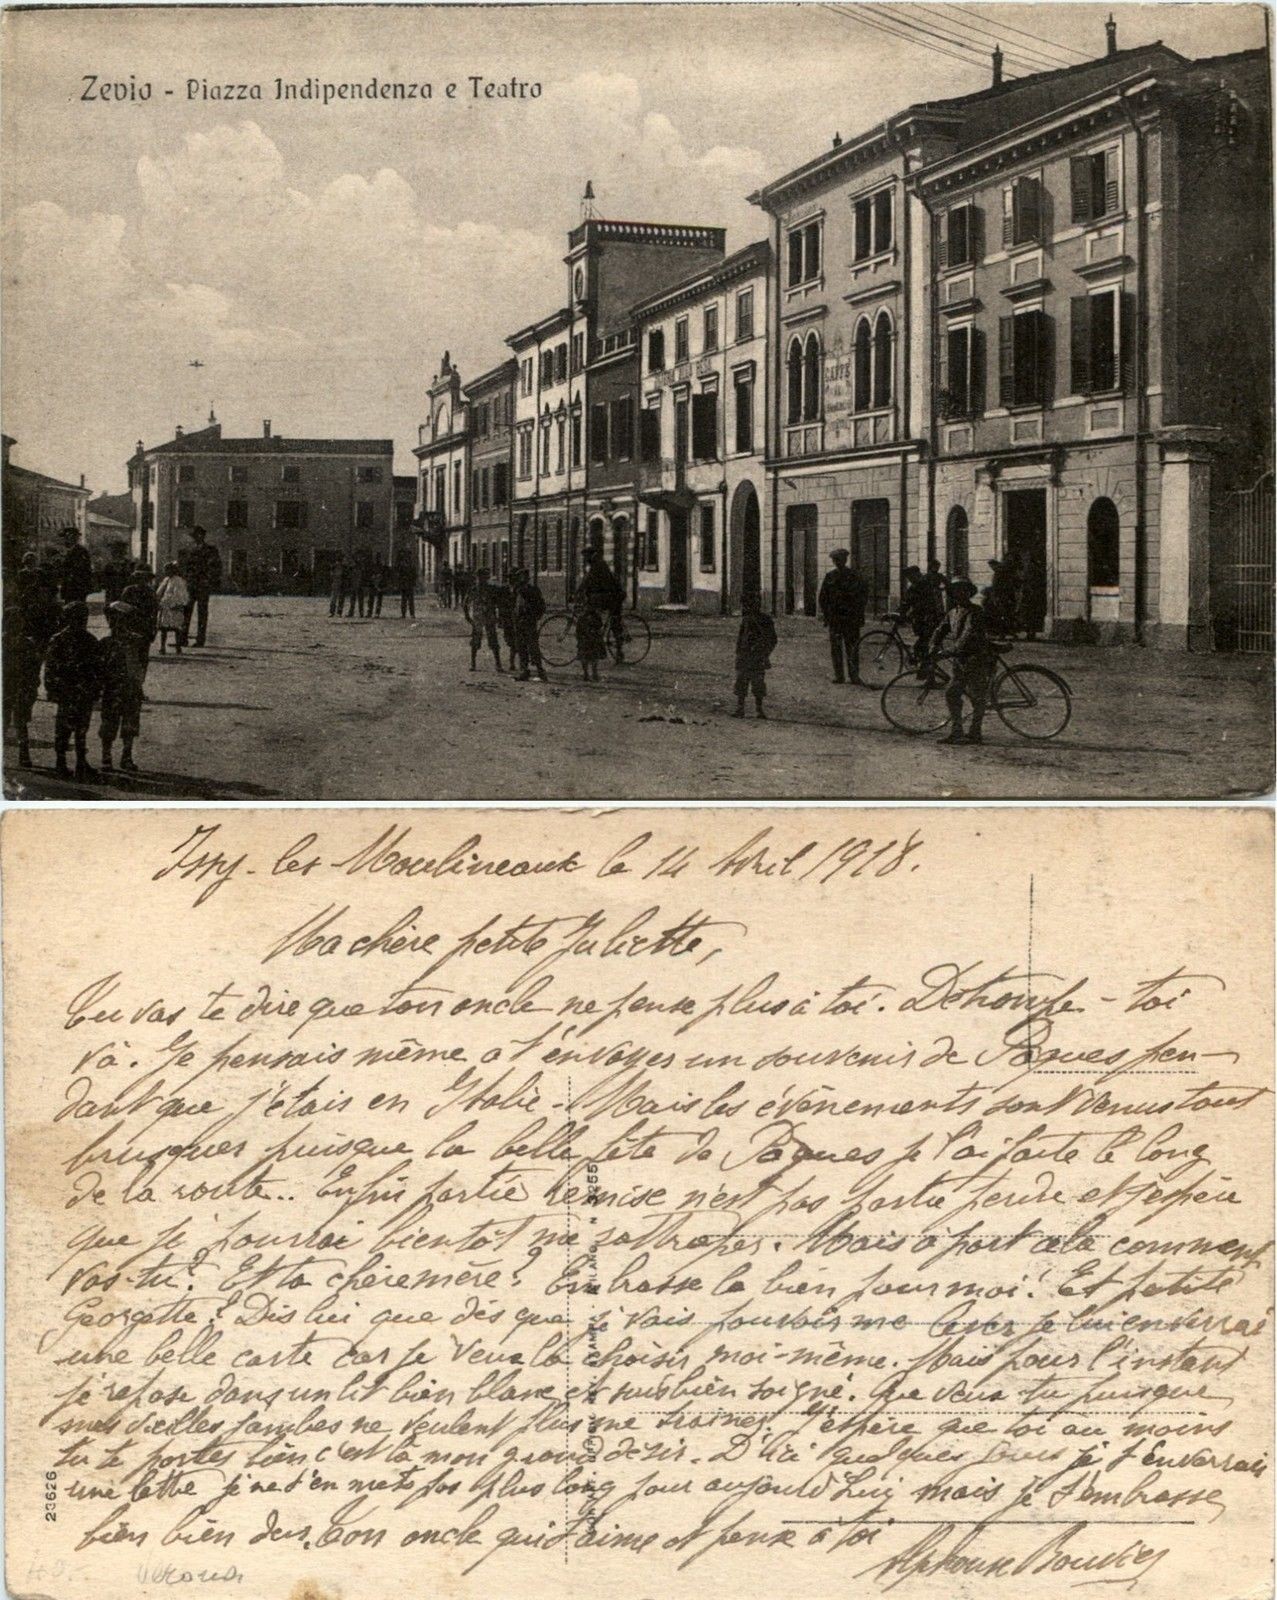 Zevio - Piazza Indipendenza e Teatro
CAFFÈ
Issy-les-Moulineaux le 14 Avril 1918.
Ma chère petite Juliette,
Tu vas te dire que ton oncle ne pense plus à toi. Détrompe-toi
va. Je pensais même à t'envoyer un souvenir de Pâques pen-
dant que j'étais en Italie. Mais les évènements sont venus tout
brusquer puisque la belle fête de Pâques je l'ai faite le long
de la route.. Enfin partie remise n'est pas partie perdue et j'espère
que je pourrai bientôt me rattraper. Mais à part cela comment
vas-tu? Et ta chère mère? Embrasse la bien pour moi! Et petite
Georgette? Dis lui que dès que je vais pouvoir me lever je lui enverrai
une belle carte car je veux la choisir moi-même. Mais pour l'instant
je repose dans un lit bien blanc et suis bien soigné. Que veux-tu puisque
mes vieilles jambes ne veulent plus me trainer. J'espère que toi au moins
tu te portes bien c'est là mon grand désir. D'ici quelques jours je t'enverrai
une lettre je ne t'en mets pas plus long pour aujourd'hui mais je t'embrasse
bien bien dur. Ton oncle qui t'aime et pense à toi
Alphonse Bouvier
23626
Verona